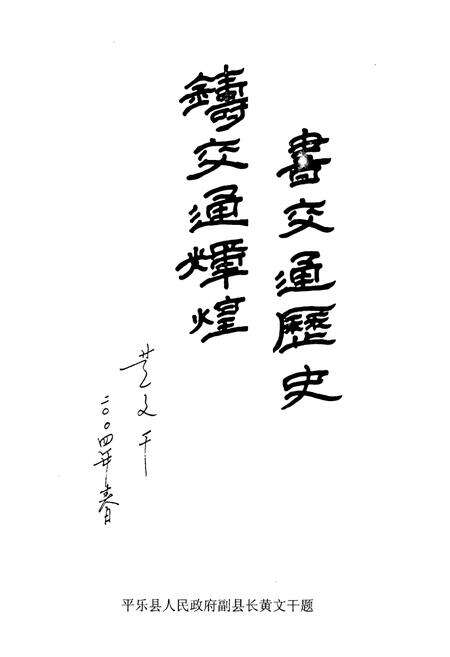 書交通歷史
鑄交通輝煌
黄文干
二〇〇四年春
平乐县人民政府副县长黄文干题